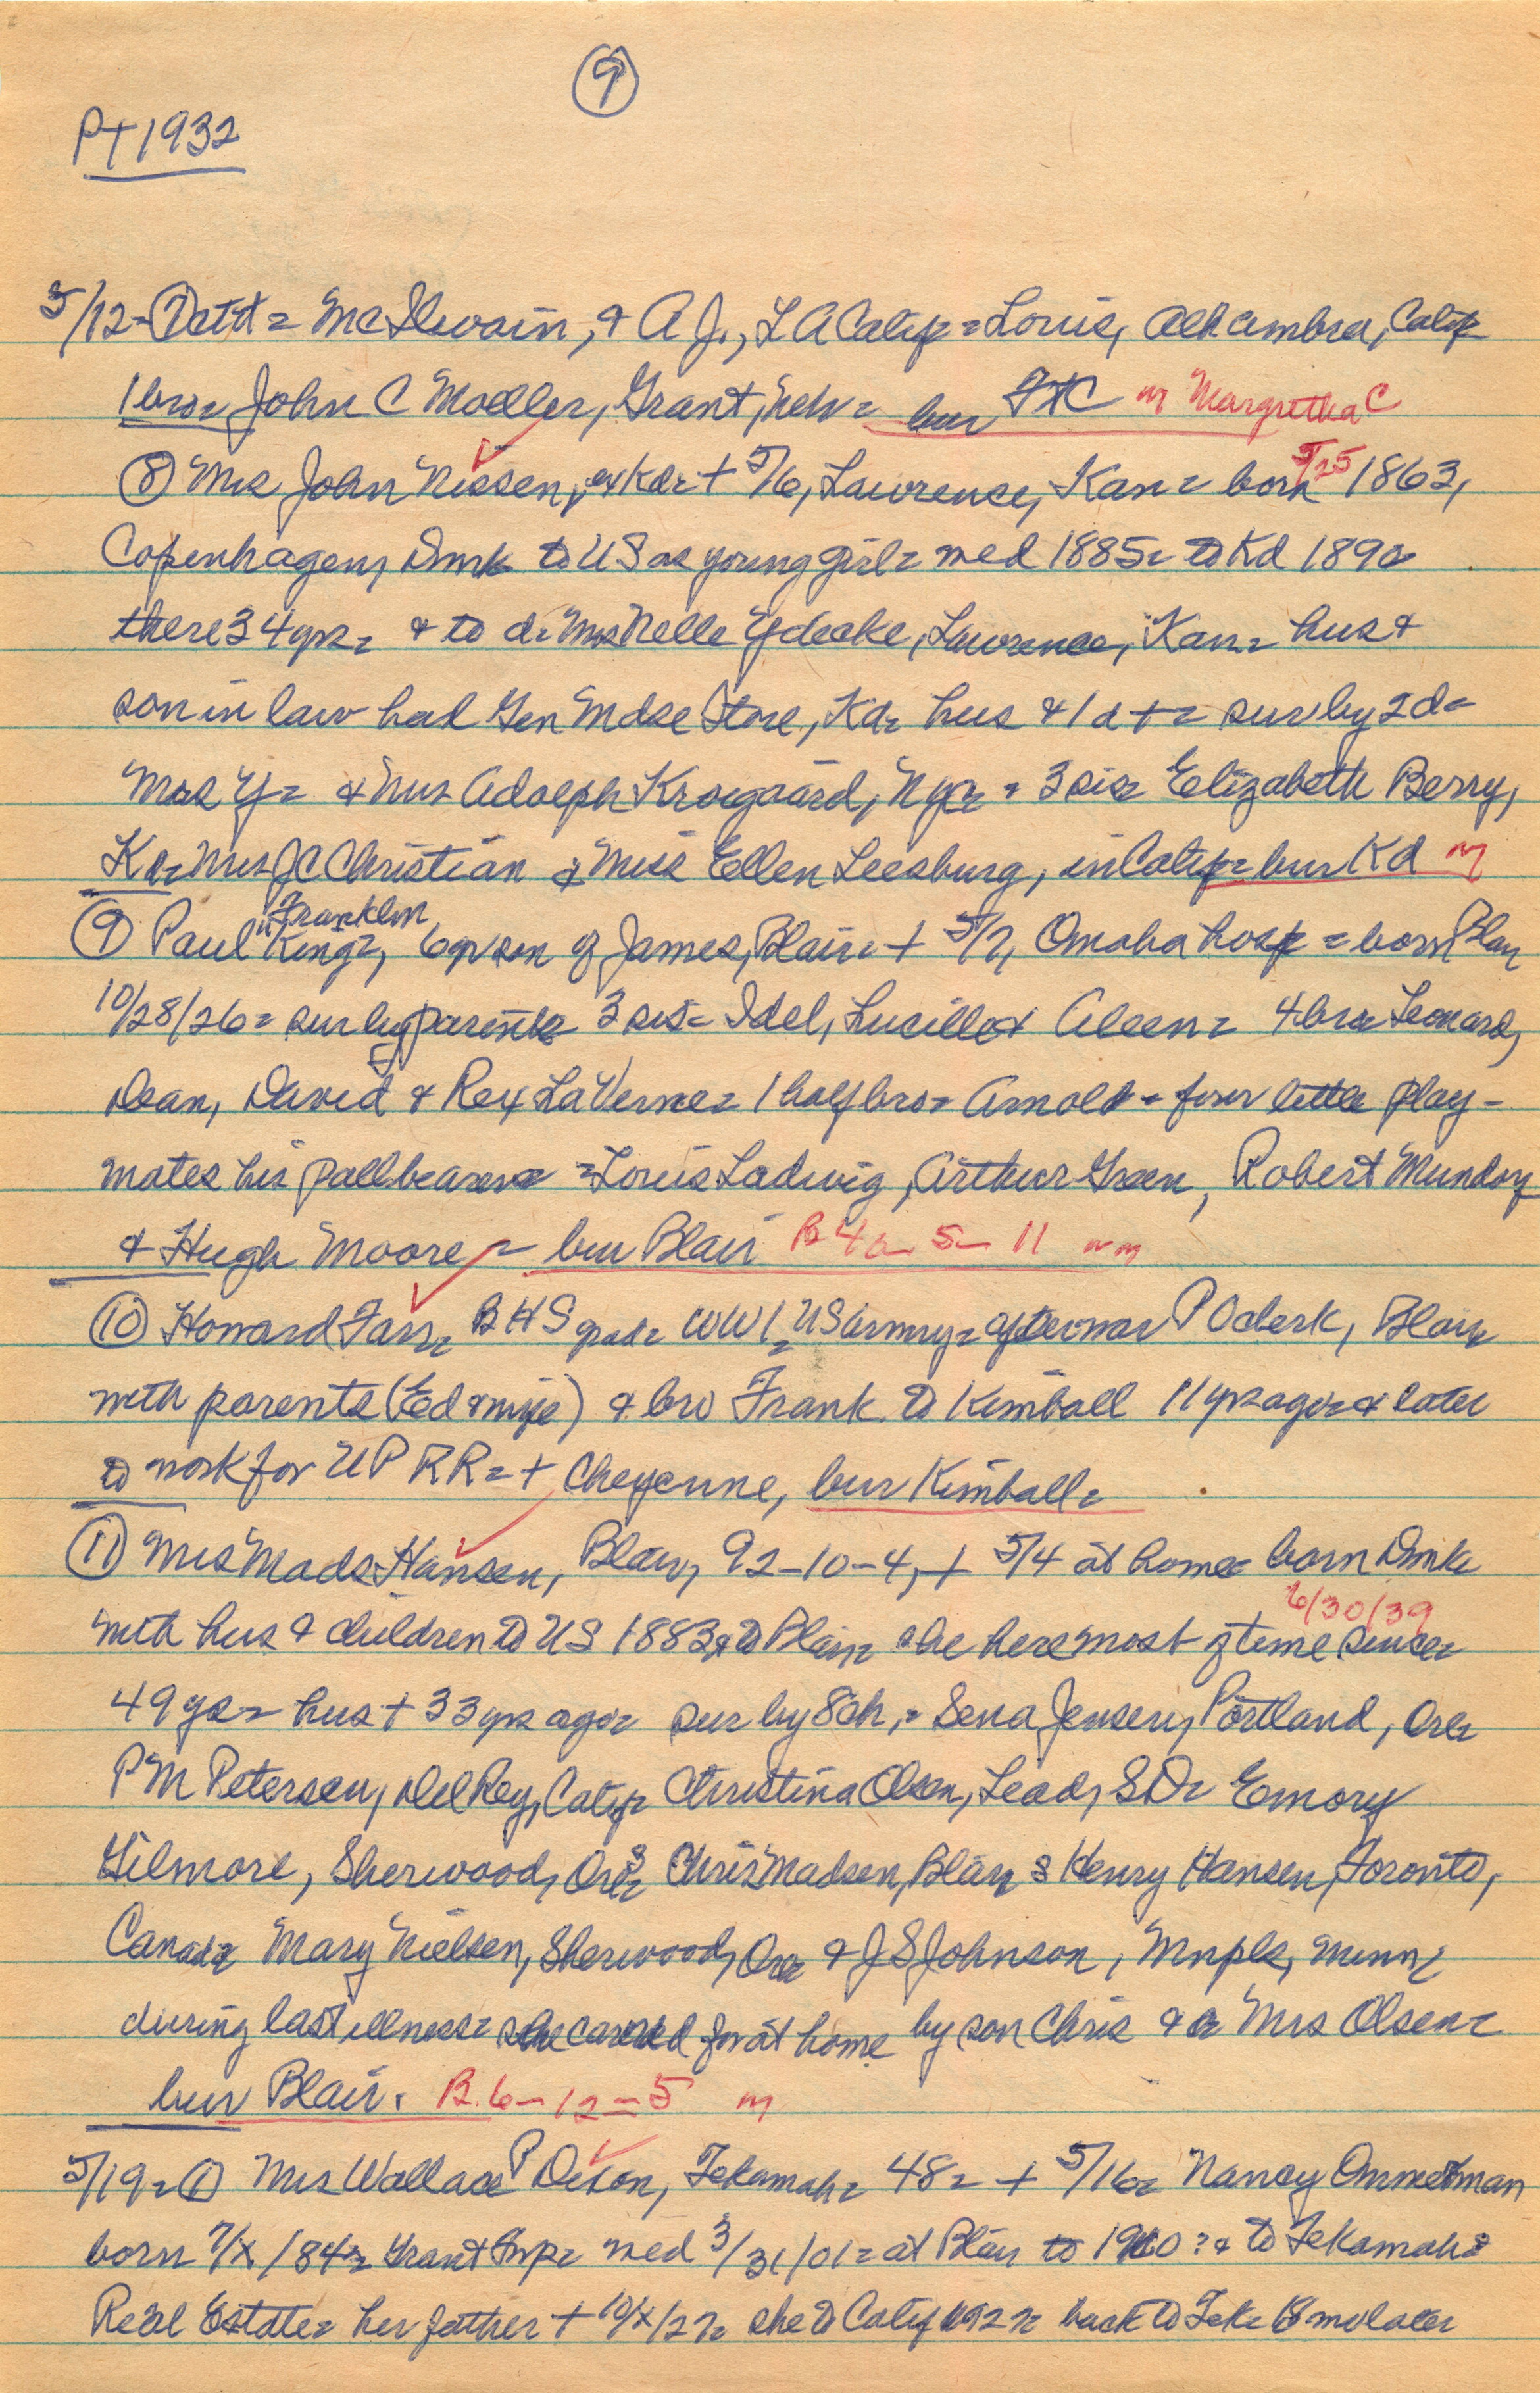 9
Pt 1932
5/12 - 7 ctd = McIlwain, & A J., L A Calif = Louis, Alhambra, Calif
1 bro = John C Moeller, Grant, Neb = bur FtC m Margretha C
8 Mrs John Nissen, ex Kd = + 5/6, Lawrence, Kan = born 5/25 1863,
Copenhagen, Dmk to US as young girl = med 1885 = to Kd 1890
there 34 yrs = & to d = Mrs Nelle Ydeake, Lawrence, Kan = hus &
son in law had Gen Mdse Store, Kd = hus & 1 d + = sur by 2 d =
Mrs Y = & Mrs Adolph Krogaard, = 3 sis = Elizabeth Berry,
Kd = Mrs J C Christian & Miss Ellen Leesburg, in Calif = bur Kd m
9 Paul "Franklin" King =, 6 yr son of James, Blair = + 5/7, Omaha hosp = born Blair
10/28/26 = sur by parents 3 sis = Idel, Lucille & Aleen = 4 bro = Leonard,
Dean, David & Rex LaVerne = 1 half bro = Arnold = four little play-
mates his pallbearers = Louis Ladwig, Arthur Green, Robert Mundorf
& Hugh Moore = bur Blair B 4 5 - 11 m
10 Howard Farr = B H S grad = WW 1 = US Army = after war P O clerk, Blair
with parents (Ed & wife) & bro Frank to Kimball 11 yrs ago = & later
to work for U P R R = + Cheyenne, bur Kimball =
11 Mrs Mads Hansen, Blair, 92-10-4, + 5/4 at home = born Dmk 6/30/39
with hus & children to US 1883 & to Blair = she here most of time since =
49 yrs = hus + 33 yrs ago = sur by 8 ch, = Sena Jensen, Portland, Ore =
P M Petersen, Del Rey, Calif = Christina Olsen, Lead, S D = Emory
Gilmore, Sherwood, Ore = s Chris Madsen, Blair s Henry Hansen, Toronto,
Canada = Mary Nielsen, Sherwood, Ore = & J S Johnson, Mnpls, Minn =
during last illness = she cared for at home by son Chris & d Mrs Olsen =
bur Blair. B. 6 - 12 = 5 m
5/19 = 1 Mrs Wallace P Dixon, Tekamah = 48 = + 5/16 = Nancy Ommerman
born 7/x/84 = Grant Twp = med 3/31/01 = at Blair to 1910 ? & to Tekamah =
Real Estate = her father + 10/x/27 = she to Calif 1927 = back to Tek = 18 mo later